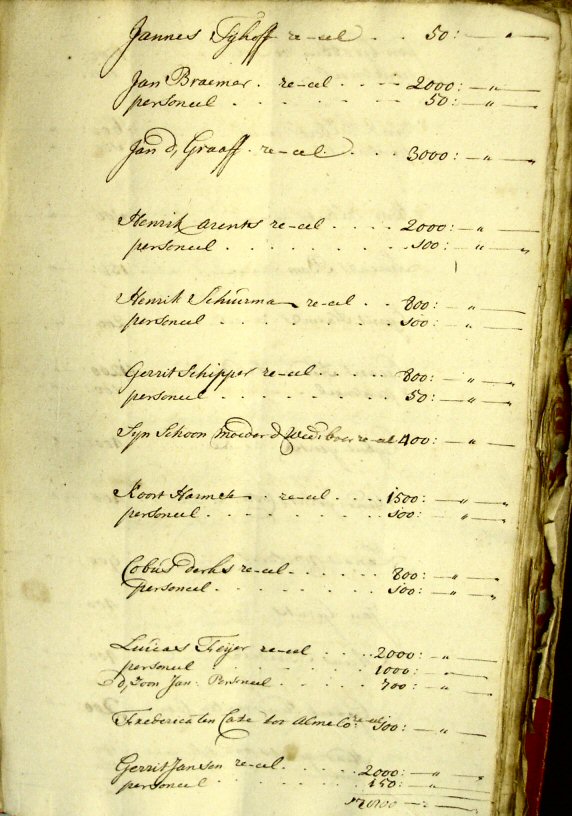 Jannes Tijhoff re-eel . . 50: — " —
Jan Braemer . re-eel . . . . 2000: — " —
personeel . . . . . . . 50: — " —
Jan d, Graaff . re-eel . . . 3000: — " —
Henrik Arents re-eel . . . . 2000: — " —
personeel . . . . . . . 100: — " —
Henrik Schuurma re-eel . . 800: — " —
personeel . . . . . . . 100: — " —
Gerrit Schipper re-eel . . . . 800: — " —
personeel . . . . . . . 50: — " —
Syn Schoon moeder d, Wed: re-eel 400: — " —
Koort Harmels . re-eel . . . 1500: — " —
personeel . . . . . . . 100: — " —
Cobus derks re-eel . . . . . 800: — " —
personeel . . . . . . . 100: — " —
Lucas Feijer re-eel . . . . 2000: — " —
personeel . . . . . . . 1000: — " —
d, Zoon Jan. Personeel . . . . 700: — " —
Frederica ten Cate tot Almelo: re-eel 500: — " —
Gerrit Jansen re-eel . . . . 2000: — " —
personeel . . . . . . . 150: — " —